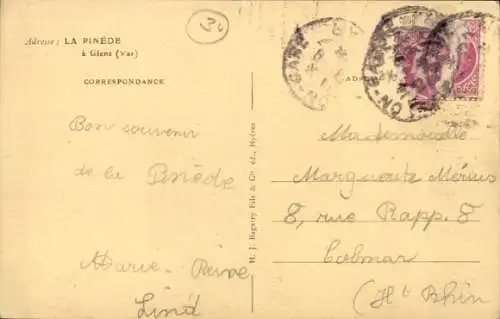 30
Adresse : LA PINÈDE
à Giens (Var)
CORRESPONDANCE
Bon souvenir
de la Pinède
Marie-Reine
Lind
H. J. Bagarry Fils & Cie éd., Hyères
Mademoiselle
Marguerite
8, rue Rapp. 8
Colmar
(Ht Rhin)